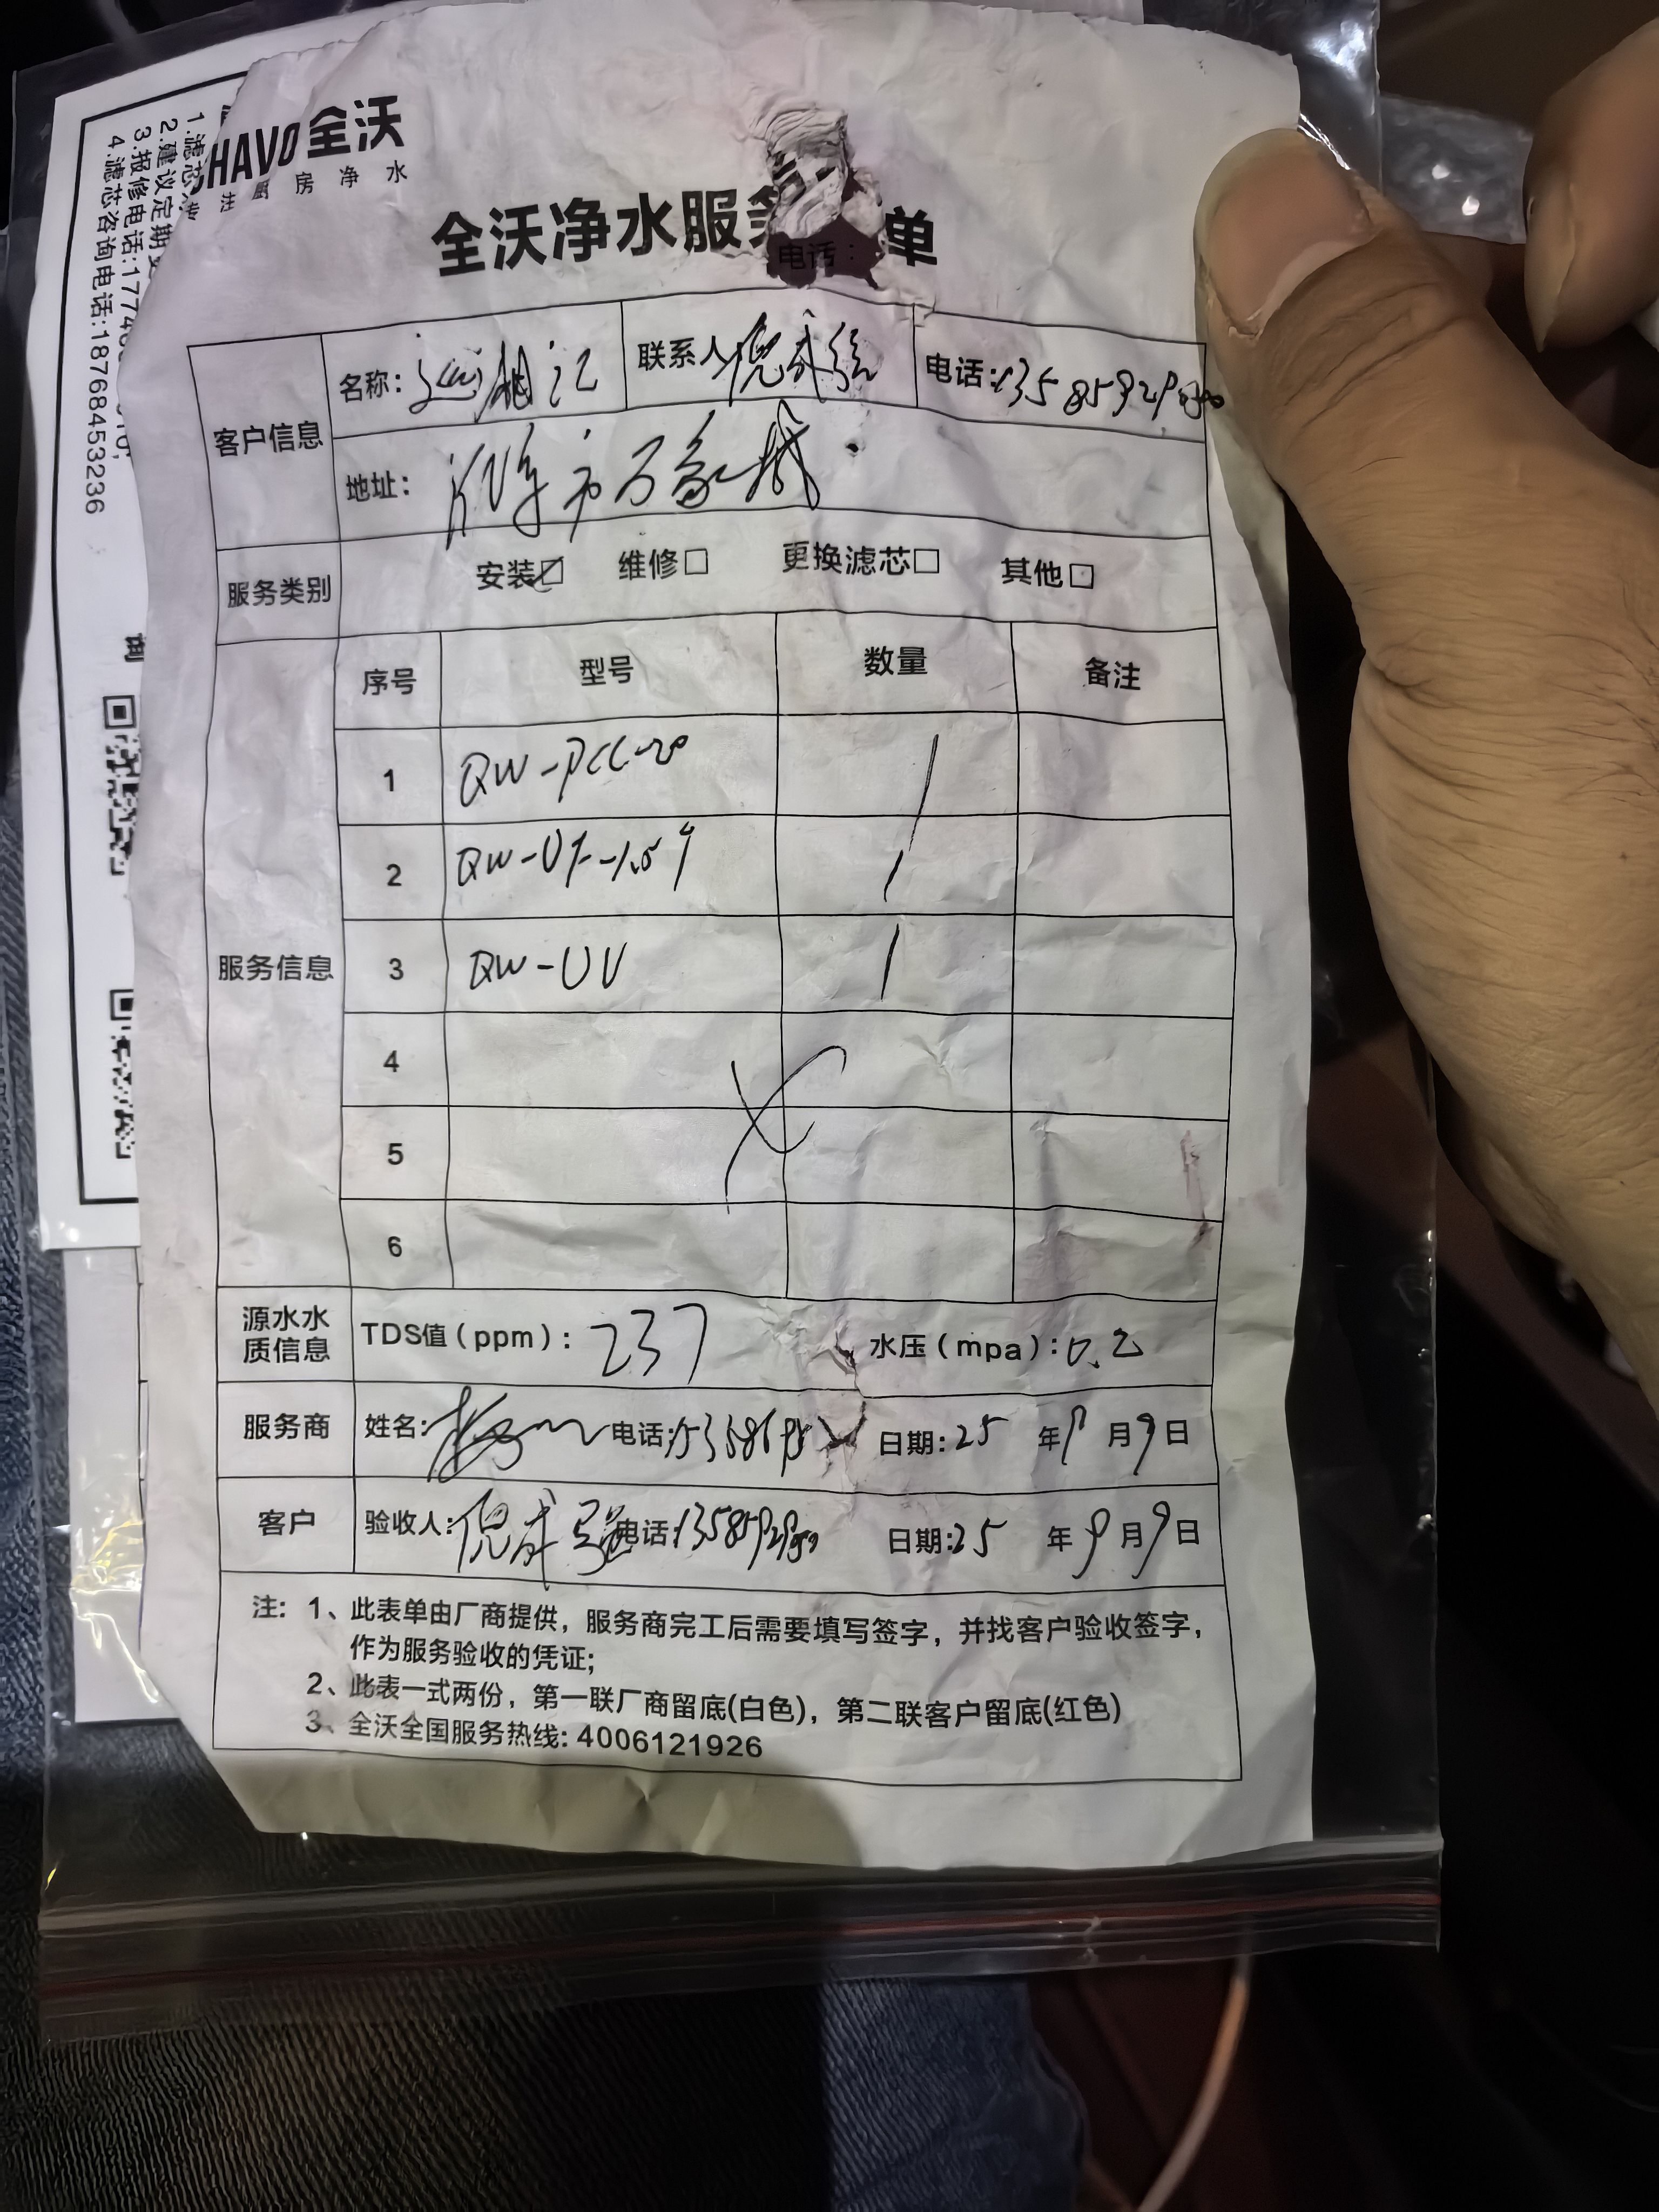 HAVO 全沃
注 厨 房 净 水
全沃净水服务 单
电话:
客户信息 名称: 联系人 倪成强 电话:
地址: 市万象城
服务类别 安装☑ 维修□ 更换滤芯□ 其他□
服务信息 序号 型号 数量 备注
1 QW-PCC-20 1
2 QW-UF-1.5T 1
3 QW-UV 1
4
5
6
源水水质信息 TDS值(ppm): 237 水压(mpa): 0.2
服务商 姓名: 电话: 日期: 25 年 9 月 9 日
客户 验收人: 倪成强 电话: 日期: 25 年 9 月 9 日
注: 1、此表单由厂商提供，服务商完工后需要填写签字，并找客户验收签字，
作为服务验收的凭证;
2、此表一式两份，第一联厂商留底(白色)，第二联客户留底(红色)
3、全沃全国服务热线: 4006121926
1.滤芯
2.建议定期
3.报修电话:
4.滤芯咨询电话:18768453236